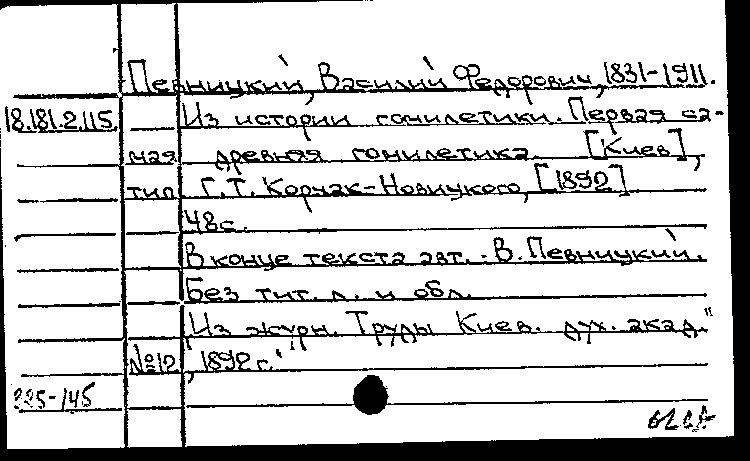 Певницкий, Василий Федорович, 1831-1911.
18.181.2.115. Из истории гомилетики. Первая са-
мая древняя гомилетика. [Киев],
тип. Г.Т. Корчак-Новицкого, [1892]
48с.
В конце текста авт.: В. Певницкий.
Без тит. л. и обл.
"Из журн. Труды Киев. дух. акад."
№12, 1892 г."
225-145